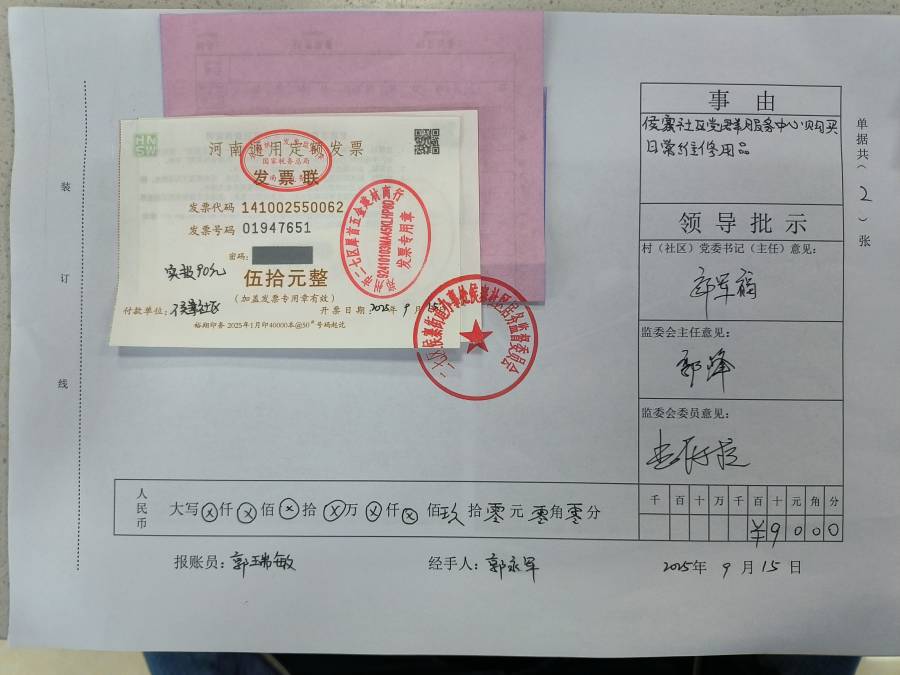 河南通用定额发票
国家税务总局
发票联
发票代码 141002550062
发票号码 01947651
密码:
实报90元
伍拾元整
(加盖发票专用章有效)
付款单位: 侯寨社区
开票日期: 2025年 9 月 15日
裕期印务 2025年1月印40000本@50#号码起讫
郑州市二七区犀首五金建材商行
92410103MA45KLHP8D
发票专用章
二七区侯寨街道办事处侯寨社区居务监督委员会
装
订
线
事 由
侯寨社区党群服务中心购买
日常维修用品
单据共(2)张
领导批示
村(社区)党委书记(主任)意见:
监委会主任意见:
郭峰
监委会委员意见:
人民币
大写⊗仟⊗佰⊗拾⊗万⊗仟⊗佰玖拾零元零角零分
千 百 十 万 千 百 十 元 角 分
¥ 9 0 0 0
报账员: 郭瑞敏
经手人: 郭永军
2025年 9 月 15 日